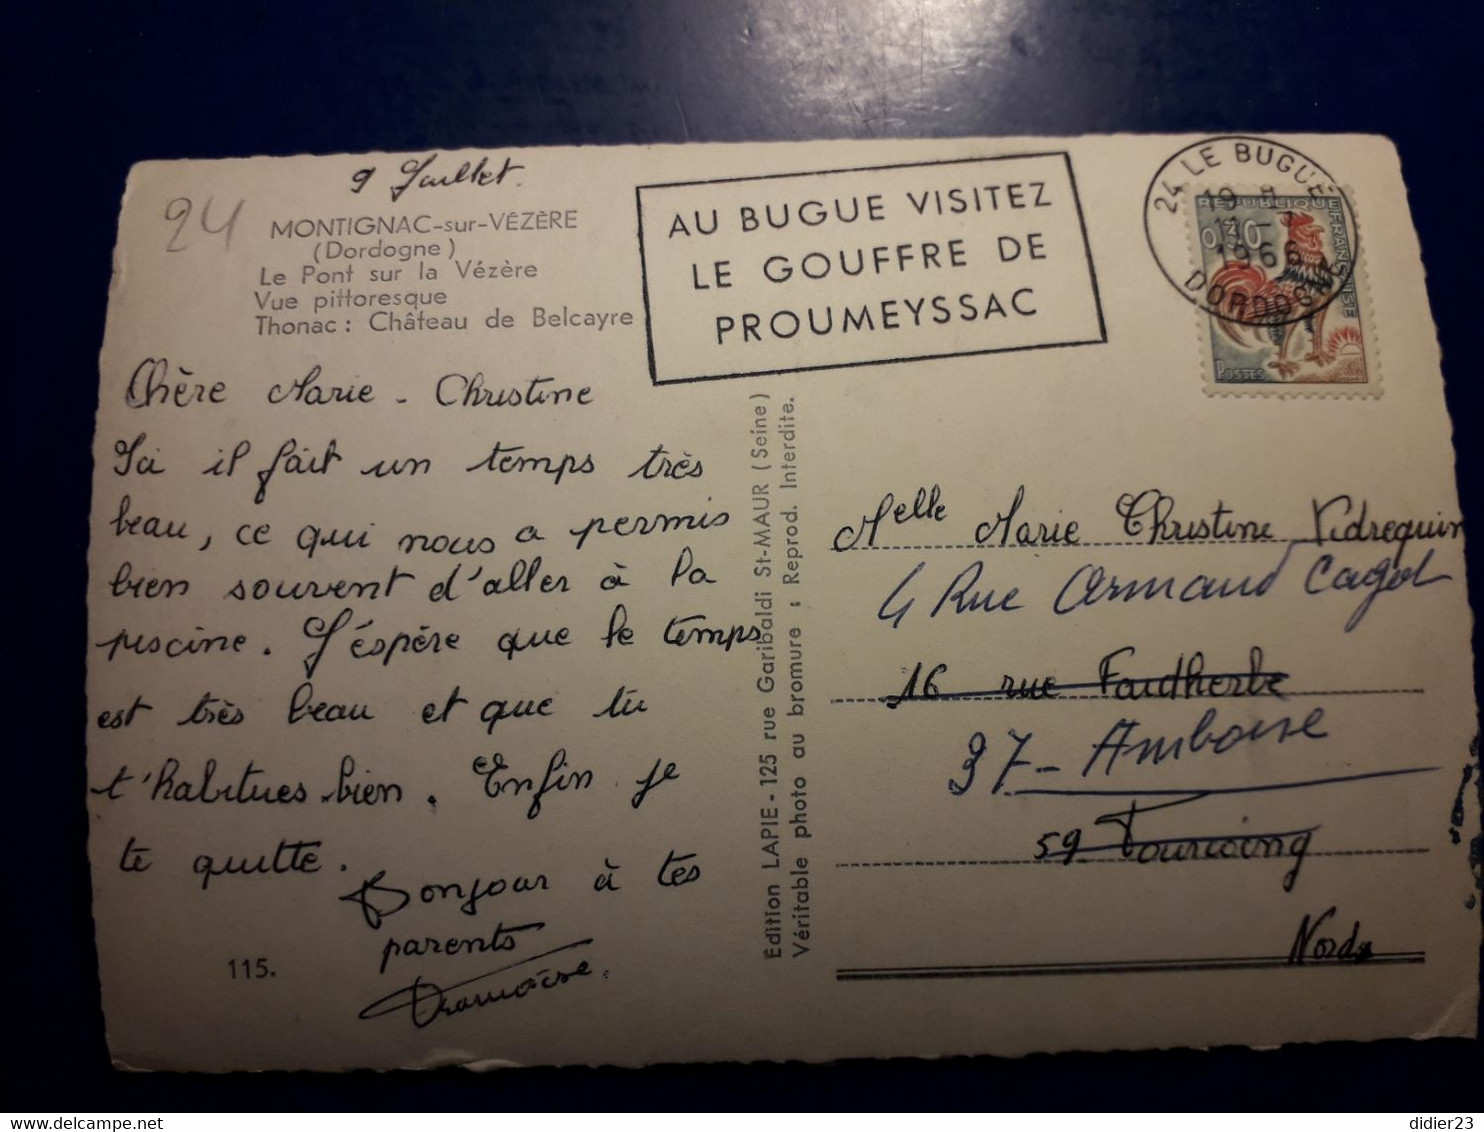 9 Juillet.
24
MONTIGNAC-sur-VÉZÈRE
(Dordogne)
Le Pont sur la Vézère
Vue pittoresque
Thonac : Château de Belcayre
AU BUGUE VISITEZ
LE GOUFFRE DE
PROUMEYSSAC
24 LE BUGUE
19 H
11-7
1966
DORDOGNE
REPUBLIQUE FRANÇAISE
POSTES
Chère Marie-Christine
Ici il fait un temps très
beau, ce qui nous a permis
bien souvent d'aller à la
piscine. J'éspère que le temps
est très beau et que tu
t'habitues bien. Enfin je
te quitte.
Bonjour à tes
parents
Françoise.
115.
Edition LAPIE - 125 rue Garibaldi St-MAUR (Seine)
Véritable photo au bromure : Reprod. Interdite.
Melle Marie Christine Vidrequin
4 Rue Armand Cagol
16 rue Faidherbe
37 - Amboise
59 Tourcoing
Nord
didier23